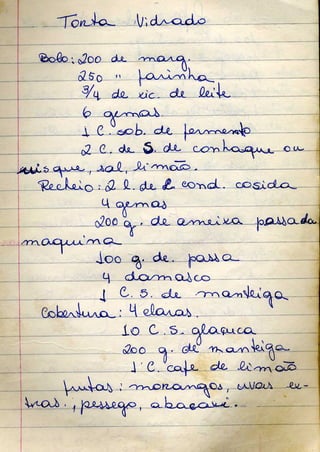 Torta Vidrado
Bolo: 200 de marg.
250 " farinha
3/4 de xic. de leite
6 gemas
1 C. sob. de fermento
2 C. de S. de conhaque ou
uisque, sal, limão.
Recheio: 2 l. de l. cond. cosida
4 gemas
200 g. de ameixa passada
maquina
100 g. de. passa
4 damasco
1 C. S. de manteiga
Cobertura: 4 claras.
10 C. S. glaçuca
200 g. de manteiga
1 C. café de limão
frutas: morangos, uvas ex-
tras., pessego, abacaxi.